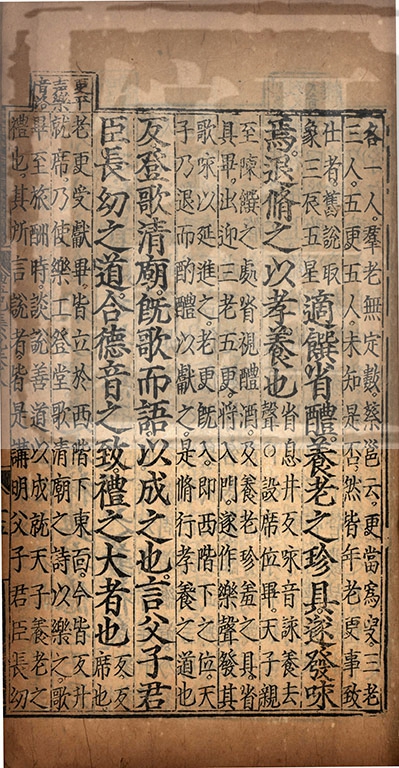 更平
聲樂
音洛
各一人。羣老無定數。蔡邕云。更當爲叟。三老
三人。五更五人。未知是否。然皆年老更事致
仕者。舊說取
象三辰五星
適饌省醴。養老之珍具。遂發咏
焉。退脩之以孝養也
省息井反咏音詠養去
聲○設席位畢。天子親
至陳饌之處。省視醴酒及養老珍羞之具。省
具畢。出迎三老五更。將入門。遂作樂聲。發其
歌咏以延進之。老更旣入。即西階下之位。天
子乃退而酌醴以獻之。是脩行孝養之道也
反。登歌清廟。旣歌而語。以成之也。言父子君
臣長幼之道。合德音之致。禮之大者也
反。反
席也
老更受獻畢。皆立於西階下東面。今皆反升
就席。乃使樂工登堂歌清廟之詩以樂之。歌
畢至旅酬時。談說善道。以成就天子養老之
禮也。其所言說者。皆是講明父子君臣長幼